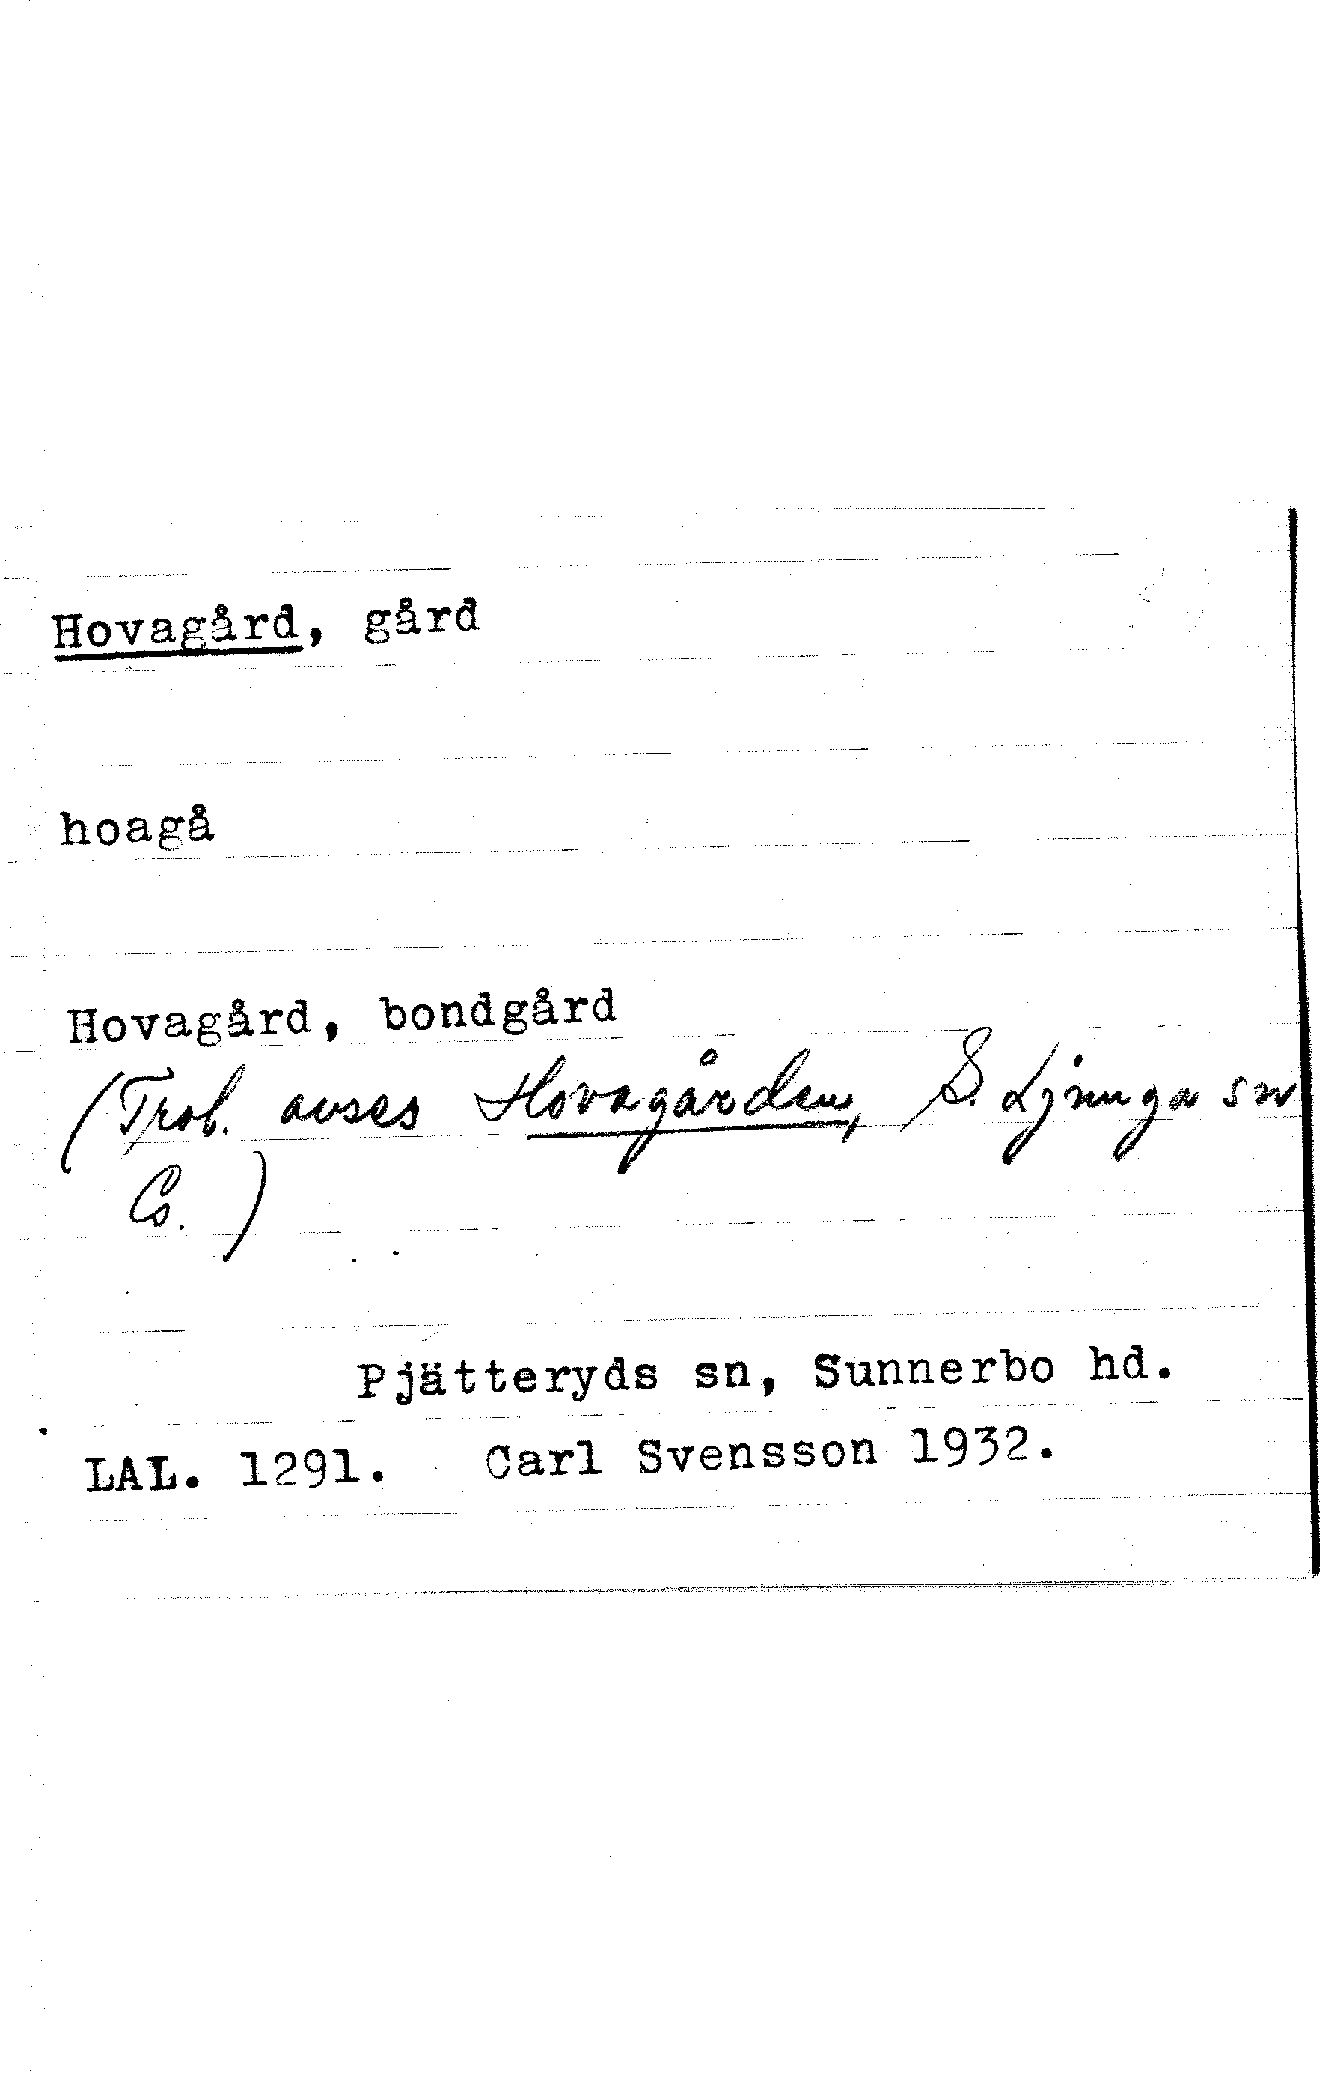 Hovagård, gård
hoagå
Hovagård, bondgård
(Trol. avses Hovagården, S. Ljunga sn
Co. )
Pjätteryds sn, Sunnerbo hd.
LAL. 1291. Carl Svensson 1932.